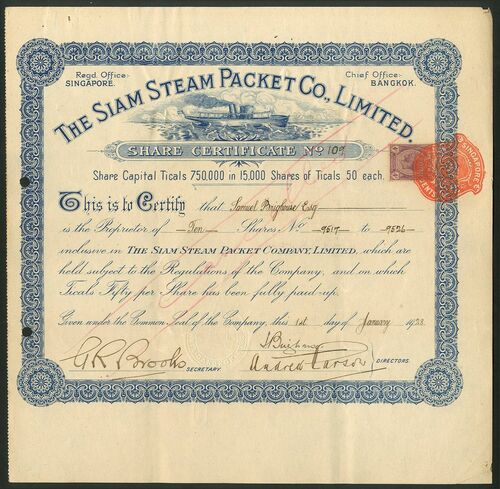 Regd. Office:-
SINGAPORE.
Chief Office:-
BANGKOK.
THE SIAM STEAM PACKET CO., LIMITED.
SHARE CERTIFICATE No 109
Share Capital Ticals 750,000 in 15,000 Shares of Ticals 50 each.
SINGAPORE
CENTS
This is to Certify that Samuel Brighouse Esq
is the Proprietor of Ten Shares No 9517 to 9526
inclusive in THE SIAM STEAM PACKET COMPANY, LIMITED, which are
held subject to the Regulations of the Company, and on which
Ticals Fifty per Share has been fully paid-up.
Given under the Common Seal of the Company, this 1st day of January 1923.
G.R. Brooks
SECRETARY.
Andrew Carson
DIRECTORS.